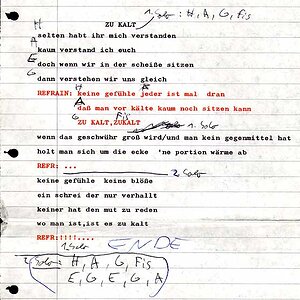 1. Solo: H, A, G, Fis
ZU KALT
H
selten habt ihr mich verstanden
A
kaum verstand ich euch
E
doch wenn wir in der scheiße sitzen
G
dann verstehen wir uns gleich
H A
REFRAIN: keine gefühle jeder ist mal dran
daß man vor kälte kaum noch sitzen kann
G Fis
ZU KALT,ZUKALT 1. Solo
wenn das geschwühr groß wird/und man kein gegenmittel hat
holt man sich um die ecke 'ne portion wärme ab
REFR: ... 2. Solo
keine gefühle keine blöße
ein schrei der nur verhallt
keiner hat den mut zu reden
wo man ist,ist es zu kalt
REFR:!!!!.... ENDE
1. Solo
2. Solo: H, A, G, Fis
E, G, E, G, A